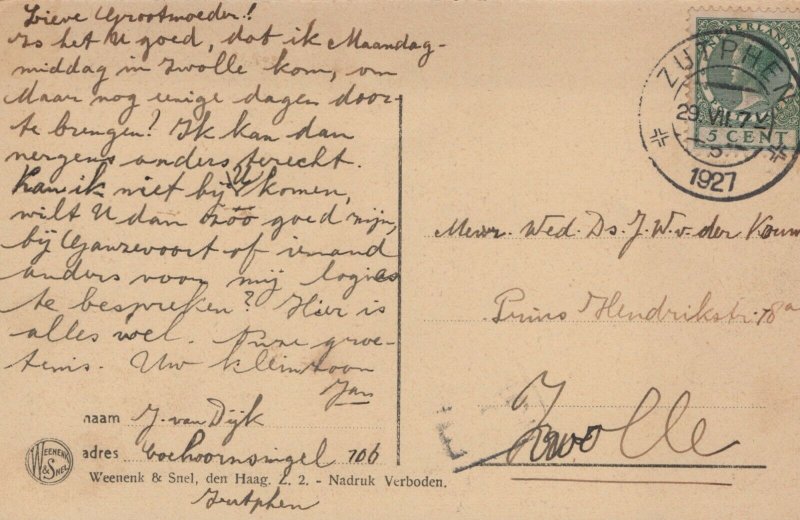 Lieve Grootmoeder!!
Is het U goed, dat ik Maandag-
middag in Zwolle kom, om
daar nog eenige dagen door
te brengen? Ik kan dan
nergens anders terecht.
Kan ik niet bij U komen,
wilt U dan zoo goed zijn,
bij Ganzevoort of iemand
anders voor mij logies
te bespreken? Hier is
alles wel. Onze groe-
tenis. Uw kleinzoon
Jan
naam J. van Dijk
adres Coehoornsingel 106
WEENENK & SNEL
Weenenk & Snel, den Haag. Z. 2. - Nadruk Verboden.
Zutphen
NEDERLAND
5 CENT
ZUTPHEN
29.VII.7V
5
1927
Mevr. Wed. Ds. J. W. v. der
Prins Hendrikstr. 18a
Zwolle